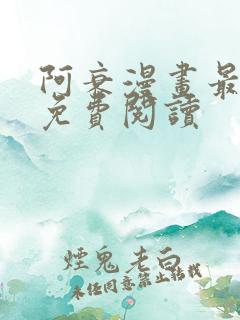 阿衰漫畫最
免費閱讀
煙鬼老白
未经同意禁止转载